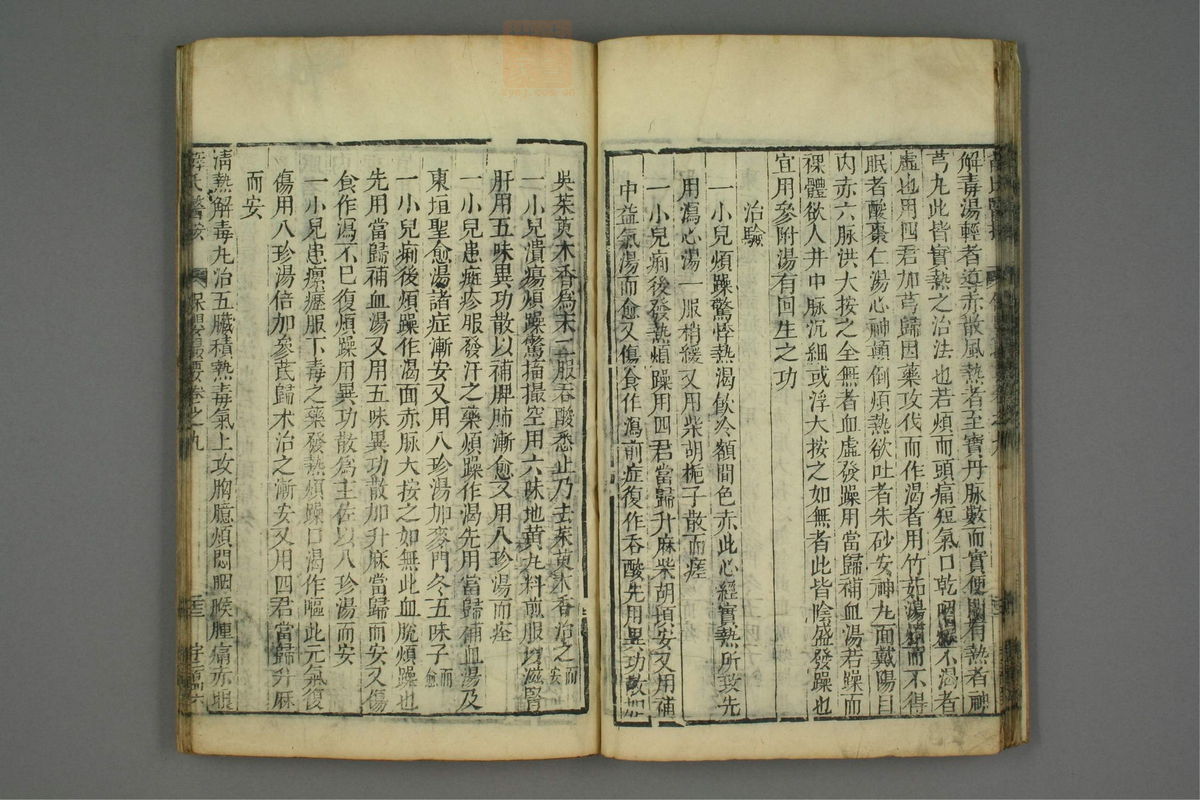 解毒湯輕者導赤散風熱者至寶丹脉數而實便閉有熱者神
芎丸此皆實熱之治法也若煩而頭痛短氣口乾咽燥不渴者
虛也用四君加芎歸因藥攻伐而作渴者用竹茹湯煩而不得
眠者酸棗仁湯心神顛倒煩熱欲吐者朱砂安神丸面戴陽目
內赤六脉洪大按之全無者血虛發躁用當歸補血湯若躁而
裸體欲入井中脉沉細或浮大按之如無者此皆陰盛發躁也
宜用參附湯有回生之功
治驗
一小兒煩躁驚悸熱渴飲冷額間色赤此心經實熱所致先
用瀉心湯一服稍緩又用柴胡梔子散而瘥
一小兒痢後發熱煩躁用四君當歸升麻柴胡頃安又用補
中益氣湯而愈又傷食作瀉前症復作吞酸先用異功散加
吳茱萸木香爲末二服吞酸悉止乃去茱萸木香治之而安
一小兒潰瘍煩躁驚搐撮空用六味地黃丸料煎服以滋腎
肝用五味異功散以補脾肺漸愈又用八珍湯而痊
一小兒患癍疹服發汗之藥煩躁作渴先用當歸補血湯及
東垣聖愈湯諸症漸安又用八珍湯加麥門冬五味子而愈
一小兒痢後煩躁作渴面赤脉大按之如無此血脫煩躁也
先用當歸補血湯又用五味異功散加升麻當歸而安久傷
食作瀉不已復煩躁用異功散爲主佐以八珍湯而安
一小兒患瘰癧服下毒之藥發熱煩躁口渴作嘔此元氣復
傷用八珍湯倍加參芪歸术治之漸安又用四君當歸升麻
而安
清熱解毒丸治五臟積熱毒氣上攻胸臆煩悶咽喉腫痛赤眼
薛氏醫按 保嬰撮要卷之九